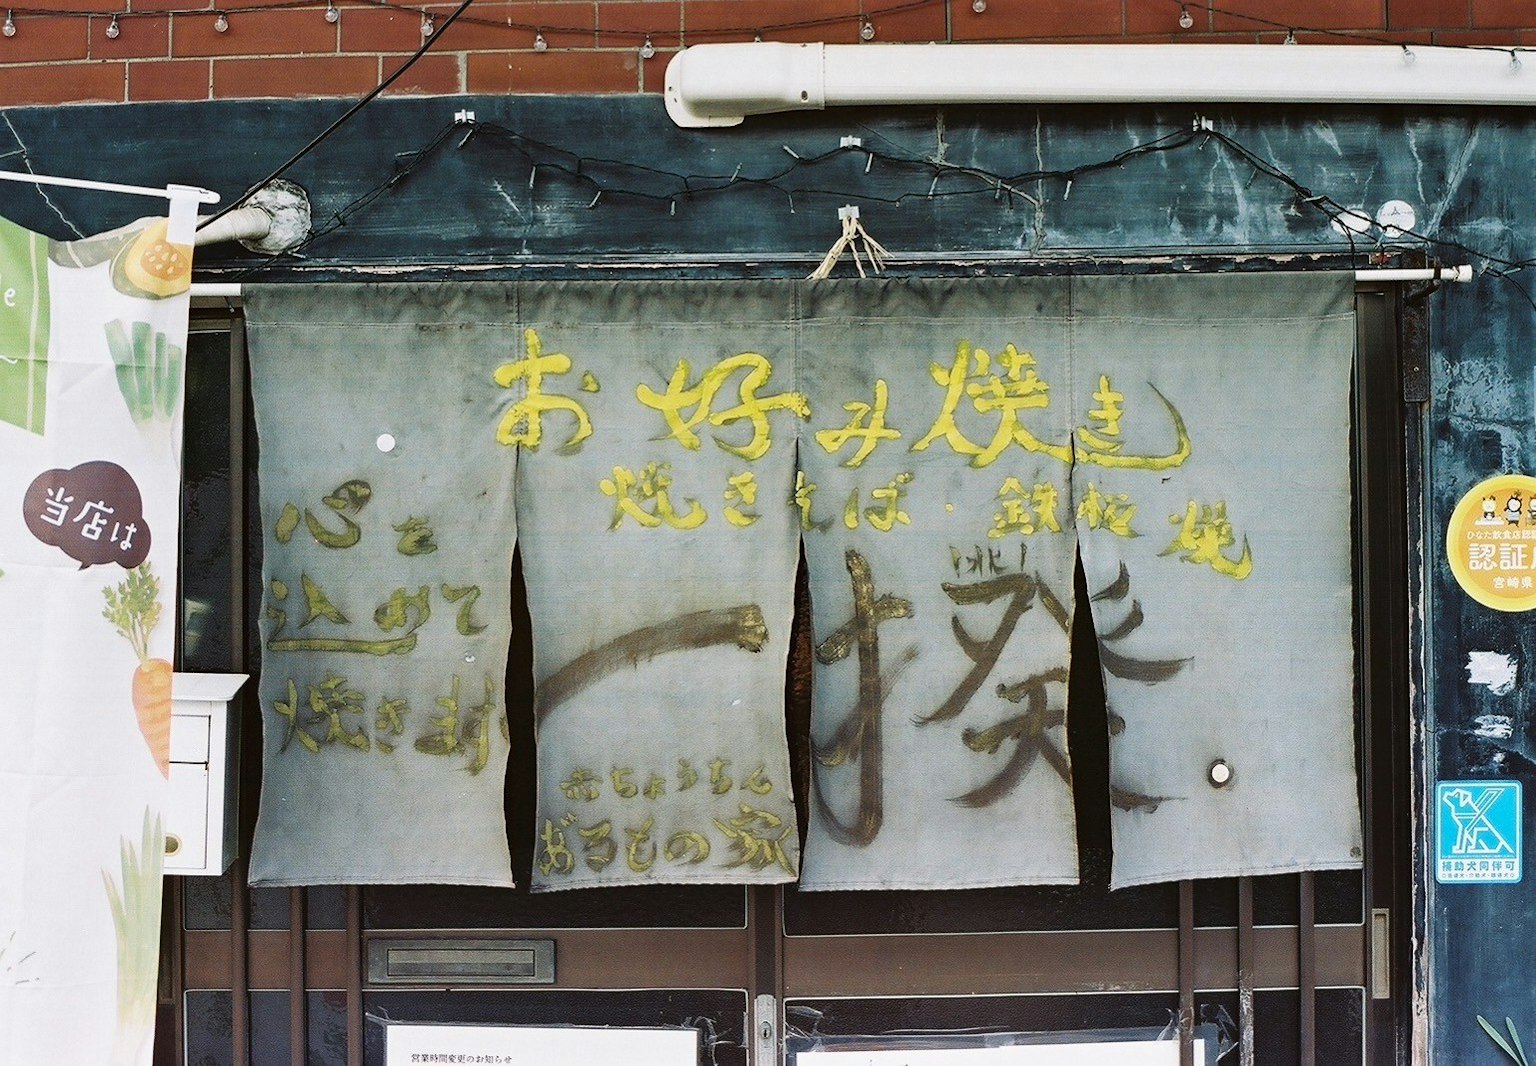 お好み焼き
焼きそば・鉄板焼
心を
込めて
焼きます
一揆
赤ちょうちん
おるもの家
当店は
ひなた飲食店認証
認証店
宮崎県
補助犬同伴可
営業時間変更のお知らせ